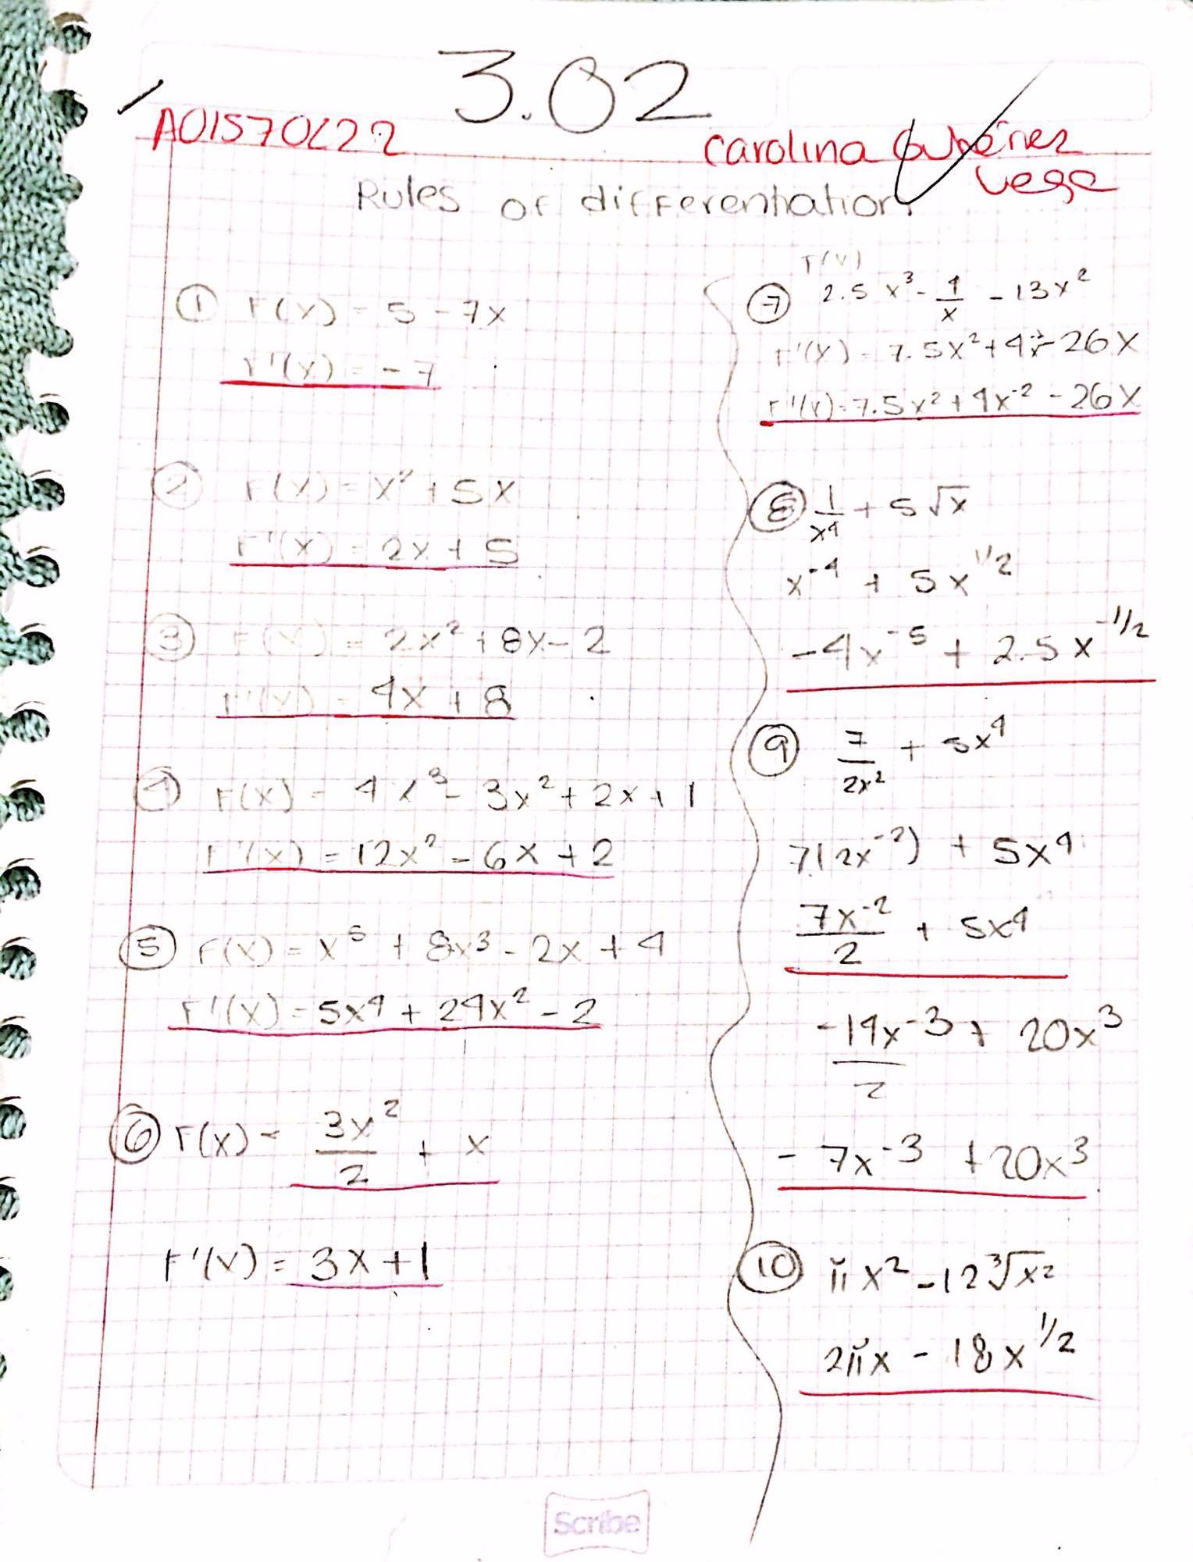 3.02
A01570622
Carolina Gutiérrez
Vega
Rules of differentiation.
① F(x) = 5 - 7x
F'(x) = -7
② F(x) = x² + 5x
F'(x) = 2x + 5
③ F(x) = 2x² + 8x - 2
F'(x) = 4x + 8
④ F(x) = 4x³ - 3x² + 2x + 1
F'(x) = 12x² - 6x + 2
⑤ F(x) = x⁵ + 8x³ - 2x + 4
F'(x) = 5x⁴ + 24x² - 2
⑥ F(x) = 3x²/2 + x
F'(x) = 3x + 1
F(x)
⑦ 2.5x³ - 4/x - 13x²
F'(x) = 7.5x² + 4x⁻² - 26x
F'(x) = 7.5x² + 4x⁻² - 26x
⑧ 1/x⁴ + 5√x
x⁻⁴ + 5x^1/2
-4x⁻⁵ + 2.5x^-1/2
⑨ 7/2x² + 5x⁴
7(2x⁻²) + 5x⁴
7x⁻²/2 + 5x⁴
-14x⁻³/2 + 20x³
-7x⁻³ + 20x³
⑩ πx² - 12∛x²
2πx - 18x^1/2
Scribe